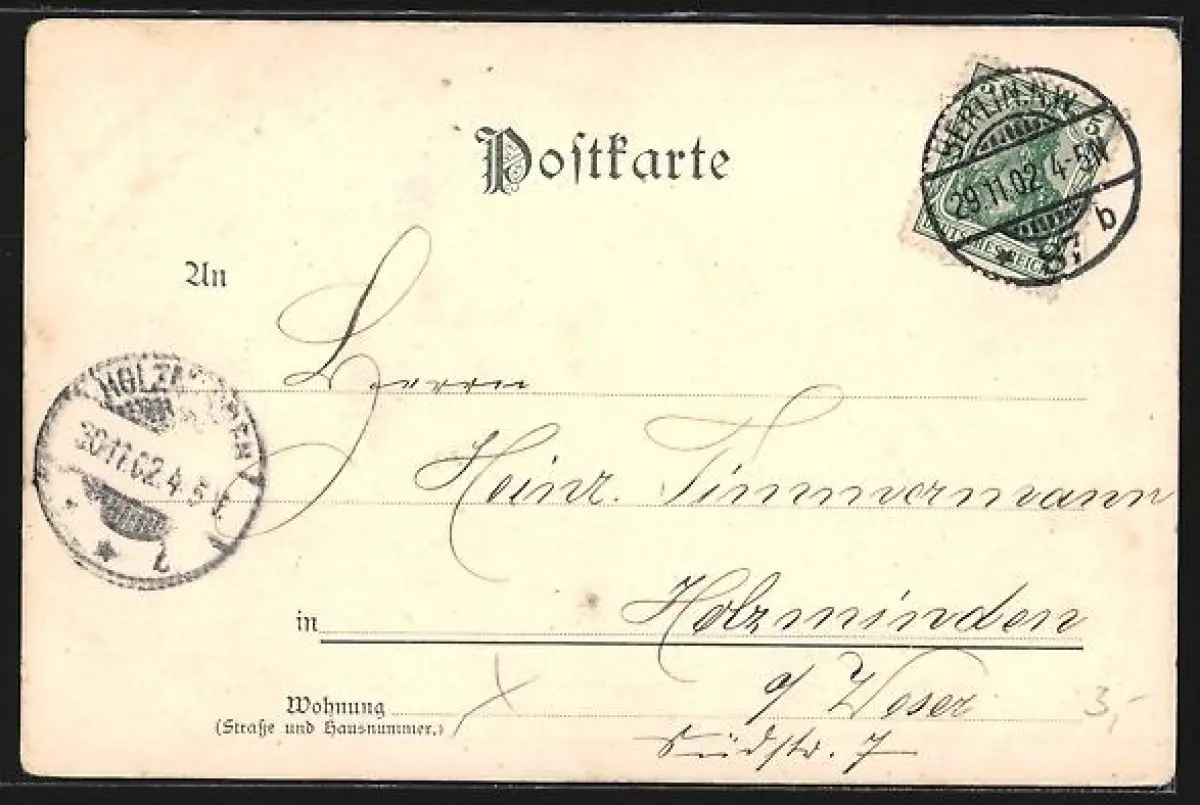 Postkarte
BERLIN.N.W. 5
29.11.02 4-5N
* 87 b
DEUTSCHES REICH
An
Herrn
HOLZMINDEN
30.11.02 4-5
* 2
Heinr. Timmermann
in Holzminden
a/ Weser
Wohnung
(Straße und Hausnummer.)
3,-
Südstr. 7